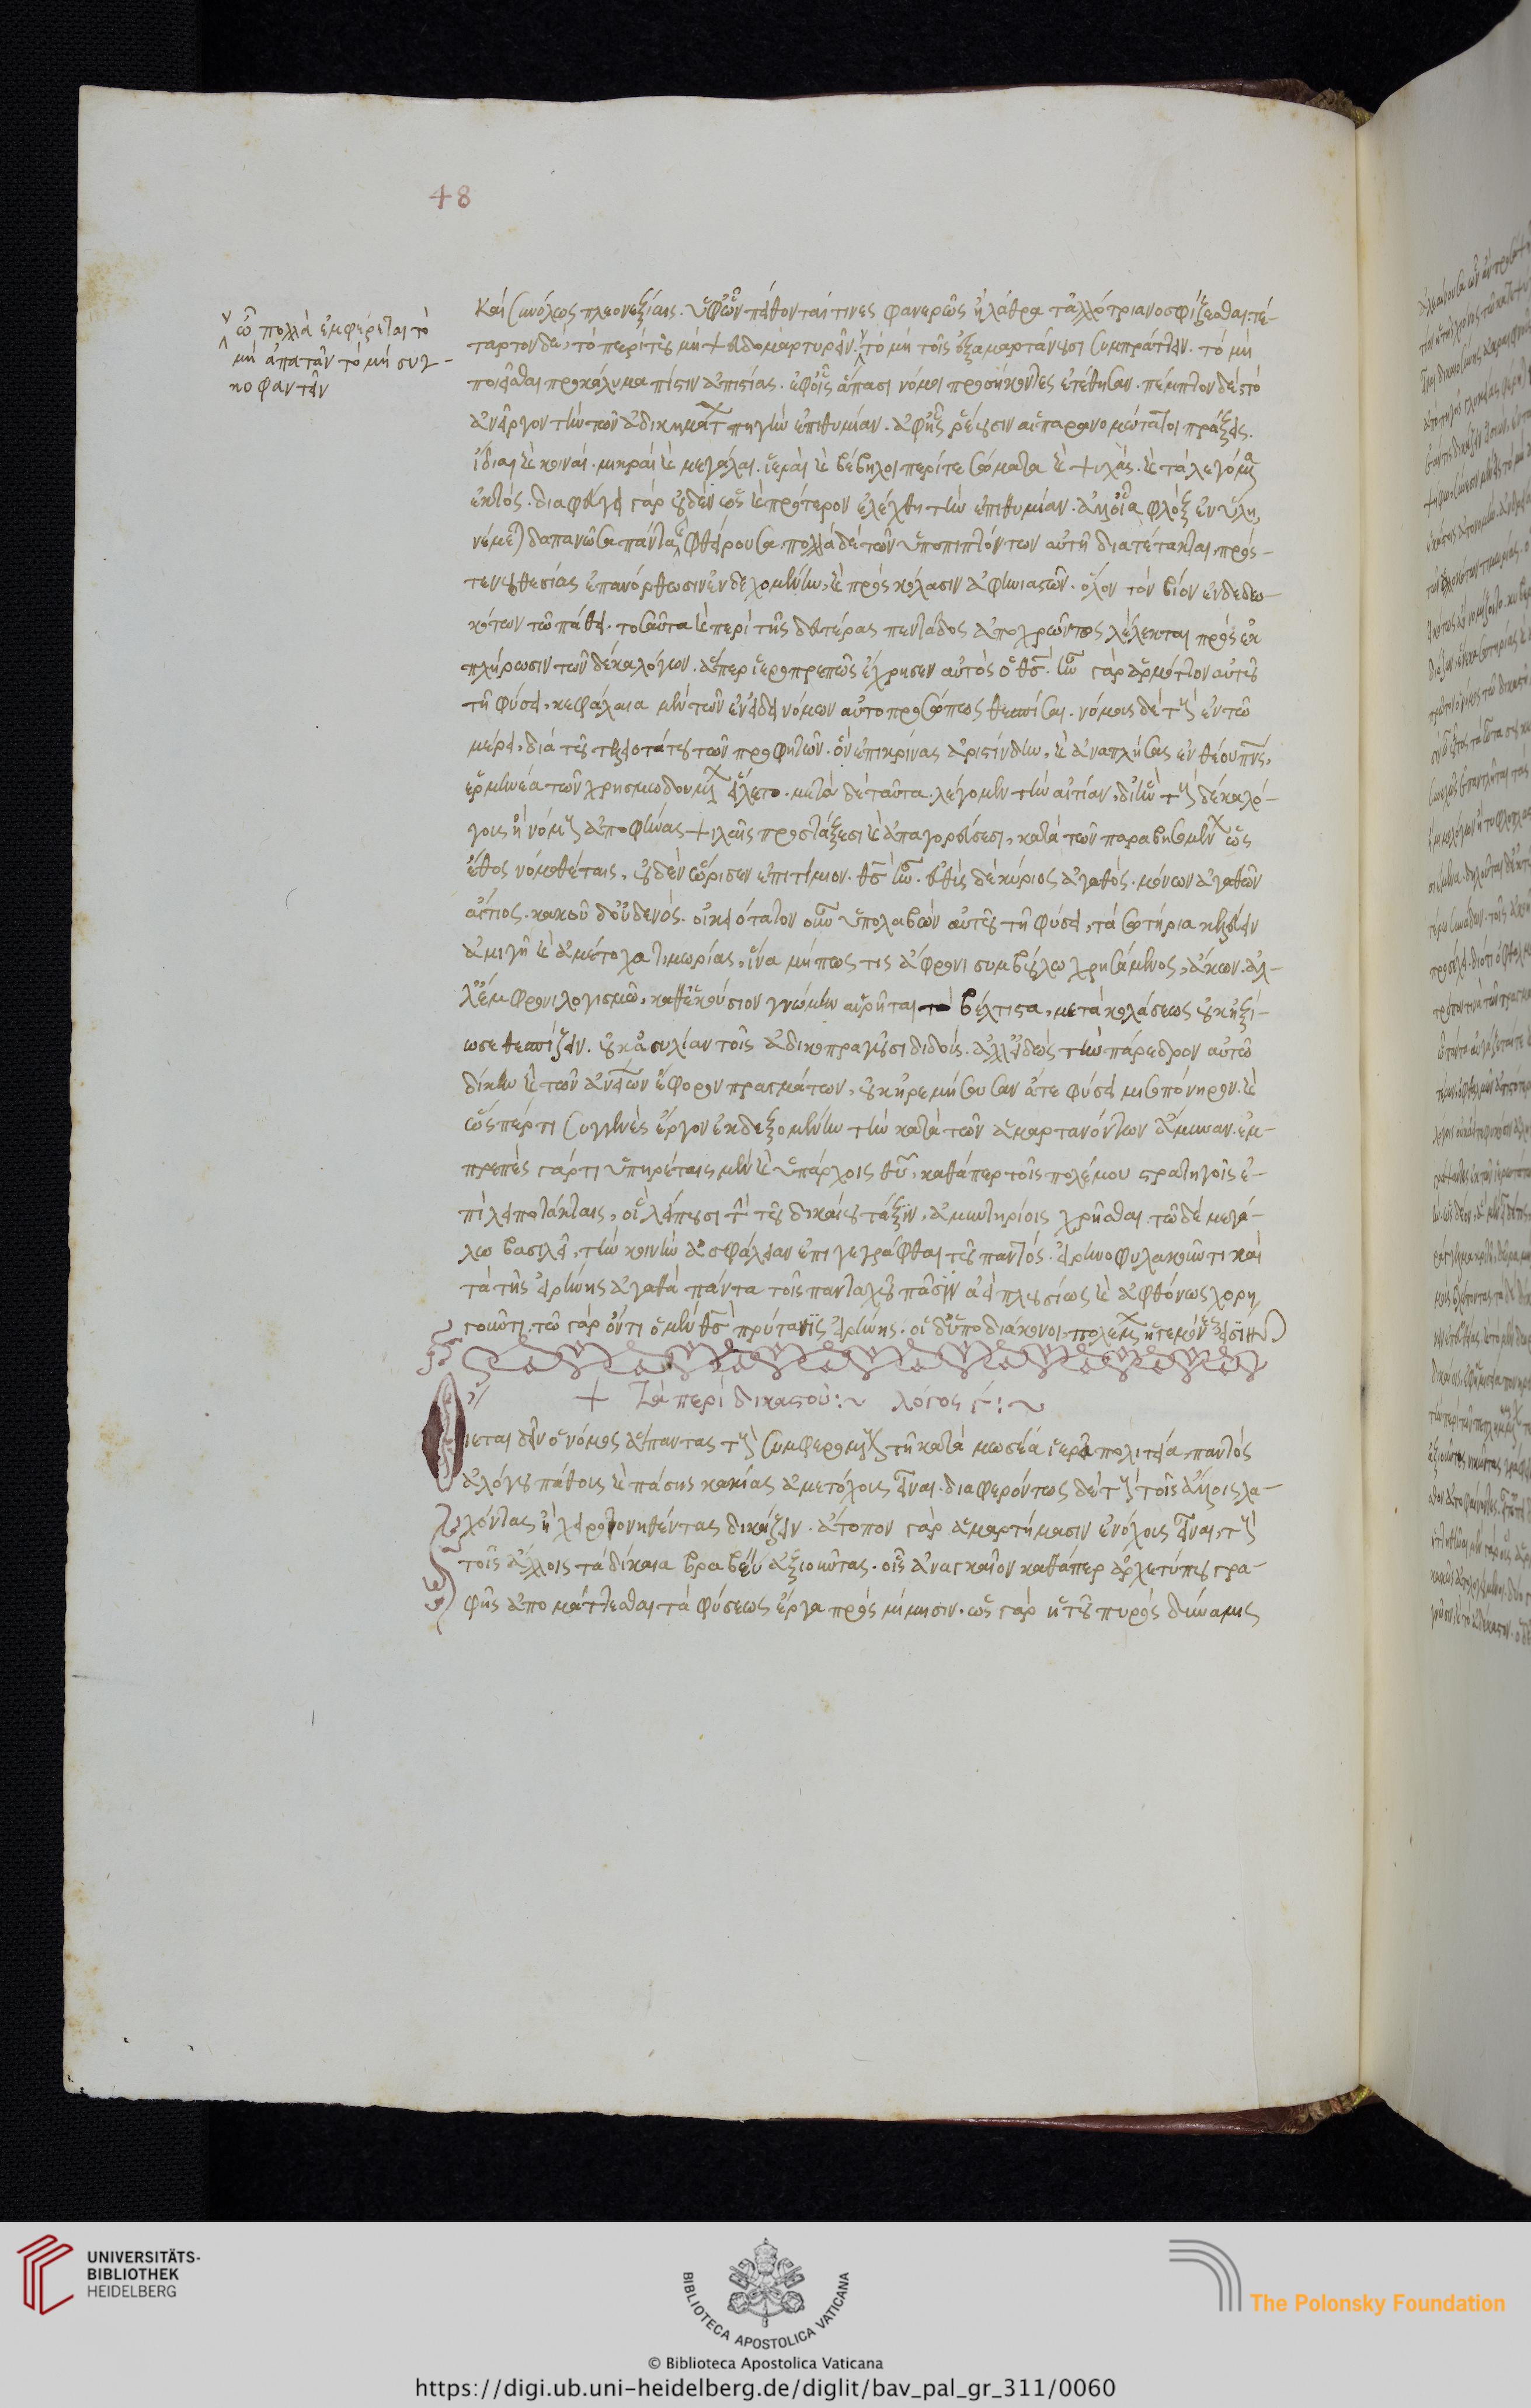 48
ὧ πολλὰ ἐμφέρεται τὸ
μὴ ἀπατᾶν τὸ μὴ συ-
κοφαντεῖν
καὶ συνόλως πλεονεξίαις. ὑφ' ὧν πείθονταί τινες φανερῶς ἢ λάθρα τ' ἀλλότρια νοσφίζεσθαι. τέ-
ταρτον δὲ, τὸ περὶ τοῦ μὴ ψευδομαρτυρεῖν. τὸ μὴ τοῖς ἐξαμαρτάνουσι συμπράττειν. τὸ μὴ
ποιεῖσθαι προκάλυμα πίστιν ἀπιστίας. ἐφ' οἷς ἅπασι νόμοι προσήκοντες ἐτέθησαν. πέμπτον δὲ, τὸ
ἀνεῖργον τὴν τῶν ἀδικημάτ πηγὴν ἐπιθυμίαν. ἀφ' ἧς ῥέουσιν αἱ παρανομώταται πράξεις.
ἴδιαι καὶ κοιναί. μικραὶ καὶ μεγάλαι. ἱεραὶ καὶ βέβηλοι περί τε σώματα καὶ ψυχάς. καὶ τὰ λεγόμ
ἐκτός. διαφεύγει γὰρ οὐδὲν ὡς καὶ πρότερον ἐλέχθη τὴν ἐπιθυμίαν. ἀλλ' οἷα φλὸξ ἐν ὕλη,
νέμε δαπανῶσα πάντα φθείρουσα. πολλὰ δὲ τῶν ὑποπιπτόντων αὐτῆ διατέτακται. πρός-
τε νουθεσίας ἐπανόρθωσιν ἐνδεχομένων, καὶ πρὸς κόλασιν ἀφηνιαστῶν. ὅλον τὸν βίον ἐνδεδω-
κότων τῶ πάθει. τοσαῦτα καὶ περὶ τῆς δευτέρας πεντάδος ἀποχρώντως λέλεκται πρὸς ἐκ
πλήρωσιν τῶν δέκα λόγων. ἅπερ ἱεροπρεπῶς ἔχρησεν αὐτὸς ὁ θς. ἦν γὰρ ἁρμόττον αὐτοῦ
τῆ φύσει, κεφάλαια μὲν τῶν ἐν εἴδει νόμων αὐτοπροσώπως θεσπίσαι. νόμους δὲ τοὺς ἐν τῶ
μέρει, διὰ τοῦ τελειοτάτου τῶν προφητῶν. ὃν ἐπικρίνας ἀριστίνδην, καὶ ἀναπλήσας ἐνθέου πνς,
ἑρμηνέα τῶν χρησμωδουμ εἵλετο. μετὰ δὲ ταῦτα. λέγομεν τὴν αἰτίαν, δι' ἣν τοὺς δέκα λό-
γους ἢ νόμους ἀποφήνας ψιλαῖς προστάξεσι καὶ ἀπαγορεύσεσι, κατὰ τῶν παραβησομέν ὡς
ἔθος νομοθέταις, οὐδὲν ὥρισεν ἐπιτίμιον. θς ἦν. εὐθὺς δὲ κύριος ἀγαθός. μόνων ἀγαθῶν
αἴτιος. κακοῦ δ' οὐδενός. οἰκειότατον οὖν ὑπολαβὼν αὐτοῦ τῆ φύσει, τὰ σωτήρια κελεύειν
ἀμιγῆ καὶ ἀμέτοχα τιμωρίας, ἵνα μή πως τις ἄφρονι συμβούλω χρησάμενος, ἄκων. ἀλ-
λ' ἔμφρονι λογισμῶ, καθ' ἑκούσιον γνώμην αἱρῆται τὰ βέλτιστα, μετὰ κολάσεως οὐκ ἠξί-
ωσε θεσπίζειν. οὐκ ἀσυλίαν τοῖς ἀδικοπραγοῦσι διδούς. ἀλλ' εἰδὼς τὴν πάρεδρον αὐτῶ
δίκην καὶ τῶν ἀνων ἔφορον πραγμάτων, οὐκ ἠρεμήσουσαν ἅτε φύσει μισοπόνηρον. καὶ
ὥσπερ τι συγγενὲς ἔργον ἐκδεξομένην τὴν κατὰ τῶν ἁμαρτανόντων ἄμυναν. ἐμ-
πρεπὲς γάρ τι ὑπηρέταις μὲν καὶ ὑπάρχοις θυ, καθάπερ τοῖς πολέμου στρατηγοῖς ἐ-
πὶ λειποτάκταις, οἳ λείπουσι τ τοῦ δικαίου τάξιν, ἀμυντηρίοις χρῆσθαι. τῶ δὲ μεγά-
λω βασιλεῖ, τὴν κοινὴν ἀσφάλειαν ἐπιγεγράφθαι τοῦ παντός. εἰρηνοφυλακοῦντι καὶ
τὰ τῆς εἰρήνης ἀγαθὰ πάντα τοῖς πανταχοῦ πᾶσιν ἀεὶ πλουσίως καὶ ἀφθόνως χορη
γοῦντι. τῶ γὰρ ὄντι ὁ μὲν θς πρύτανις εἰρήνης. οἱ δ' ὑποδιάκονοι, πολέμ ἡγεμόν εἰσιν
+ τὰ περὶ δικαστοῦ: ~ λόγος ϛ: ~
Οἴεται δεῖν ὁ νόμος ἅπαντας τοὺς συμφερομ τῆ κατὰ μωσέα ἱερᾶ πολιτεία, παντὸς
ἀλόγου πάθους καὶ πάσης κακίας ἀμετόχους εἶναι. διαφερόντως δὲ τοὺς τοῖς ἄλλοις λα-
χόντας ἢ χειροτονηθέντας δικάζειν. ἄτοπον γὰρ ἁμαρτήμασιν ἐνόχους εἶναι, τοὺς
τοῖς ἄλλοις τὰ δίκαια βραβεύ ἀξιοῦντας. οἷς ἀναγκαῖον καθάπερ ἀρχετύπου γρα-
φῆς ἀπομάττεσθαι τὰ φύσεως ἔργα πρὸς μίμησιν. ὡς γὰρ ἡ τοῦ πυρὸς δύναμις
UNIVERSITÄTS-
BIBLIOTHEK
HEIDELBERG
BIBLIOTECA APOSTOLICA VATICANA
The Polonsky Foundation
© Biblioteca Apostolica Vaticana
https://digi.ub.uni-heidelberg.de/diglit/bav_pal_gr_311/0060